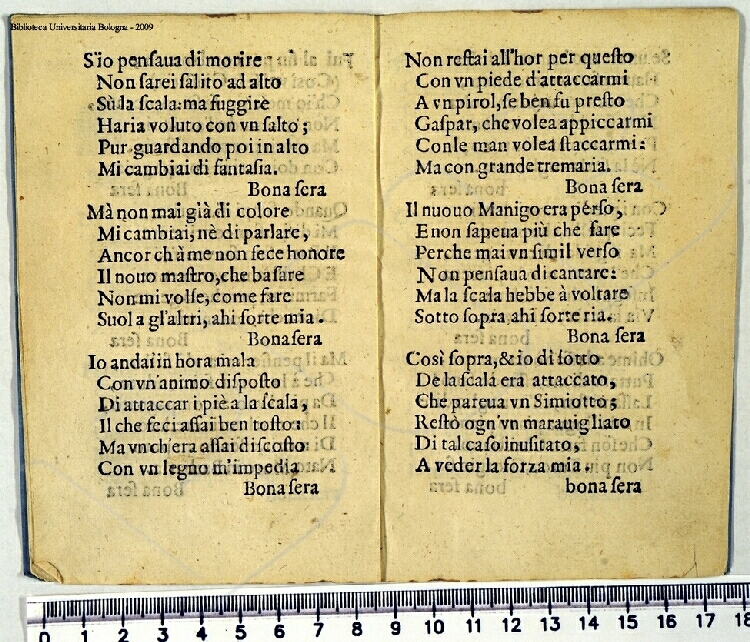 Biblioteca Universitaria Bologna - 2009
S'io pensaua di morire
Non sarei salito ad alto
Sù la scala: ma fuggire
Haria voluto con vn salto;
Pur guardando poi in alto
Mi cambiai di fantasia.
Bona sera
Mà non mai già di colore
Mi cambiai, nè di parlare,
Ancor ch à me non fece honore
Il nouo mastro, che basare
Non mi volse, come fare
Suol a gl'altri, ahi sorte mia.
Bona sera
Io andai in hora mala
Con vn'animo disposto
Di attaccar i piè a la scala,
Il che feci assai ben tosto:
Ma vn ch'era assai discosto
Con vn legno m'impedia
Bona sera
Non restai all'hor per questo
Con vn piede d'attaccarmi
A vn pirol, se ben fu presto
Gaspar, che volea appiccarmi
Con le man volea staccarmi:
Ma con grande tremaria.
Bona sera
Il nuouo Manigo era perso,
E non sapeua più che fare
Perche mai vn simil verso
Non pensaua di cantare:
Ma la scala hebbe à voltare
Sotto sopra ahi sorte ria.
Bona sera
Così sopra, & io di sotto
De la scala era attaccato,
Che pareua vn Simiotto;
Restò ogn'vn marauigliato
Di tal caso inusitato,
A veder la forza mia.
bona sera
0 1 2 3 4 5 6 7 8 9 10 11 12 13 14 15 16 17 18